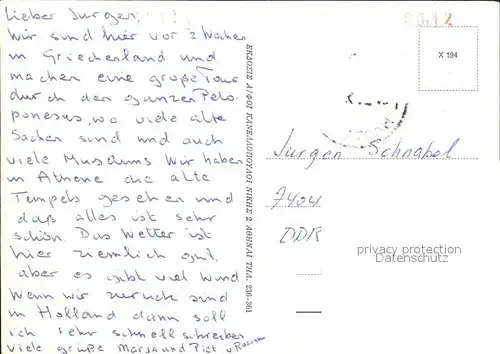 Lieber Jurgen,
Wir sind hier vor 2 Wochen
in Griechenland und
machen eine große Tour
durch den ganzen Pelo
ponesus, wo viele alte
Sachen sind und auch
viele Museums Wir haben
in Athene die alte
Tempels gesehen und
daß alles ist sehr
schön. Das Wetter ist
hier ziemlich gut,
aber es gibt viel Wind
Wenn wir zuruck sind
in Holland dann soll
ich sehr schnell schreiben
viele große Marja und Piet v
ΕΚΔΟΣΙΣ ΑΦΟΙ ΚΑΝΕΛΛΟΠΟΥΛΟΙ ΝΙΚΗΣ 2 ΑΘΗΝΑΙ ΤΗΛ. 236-361
X 194
Jurgen Schnabel
7404
DDR
privacy protection
Datenschutz